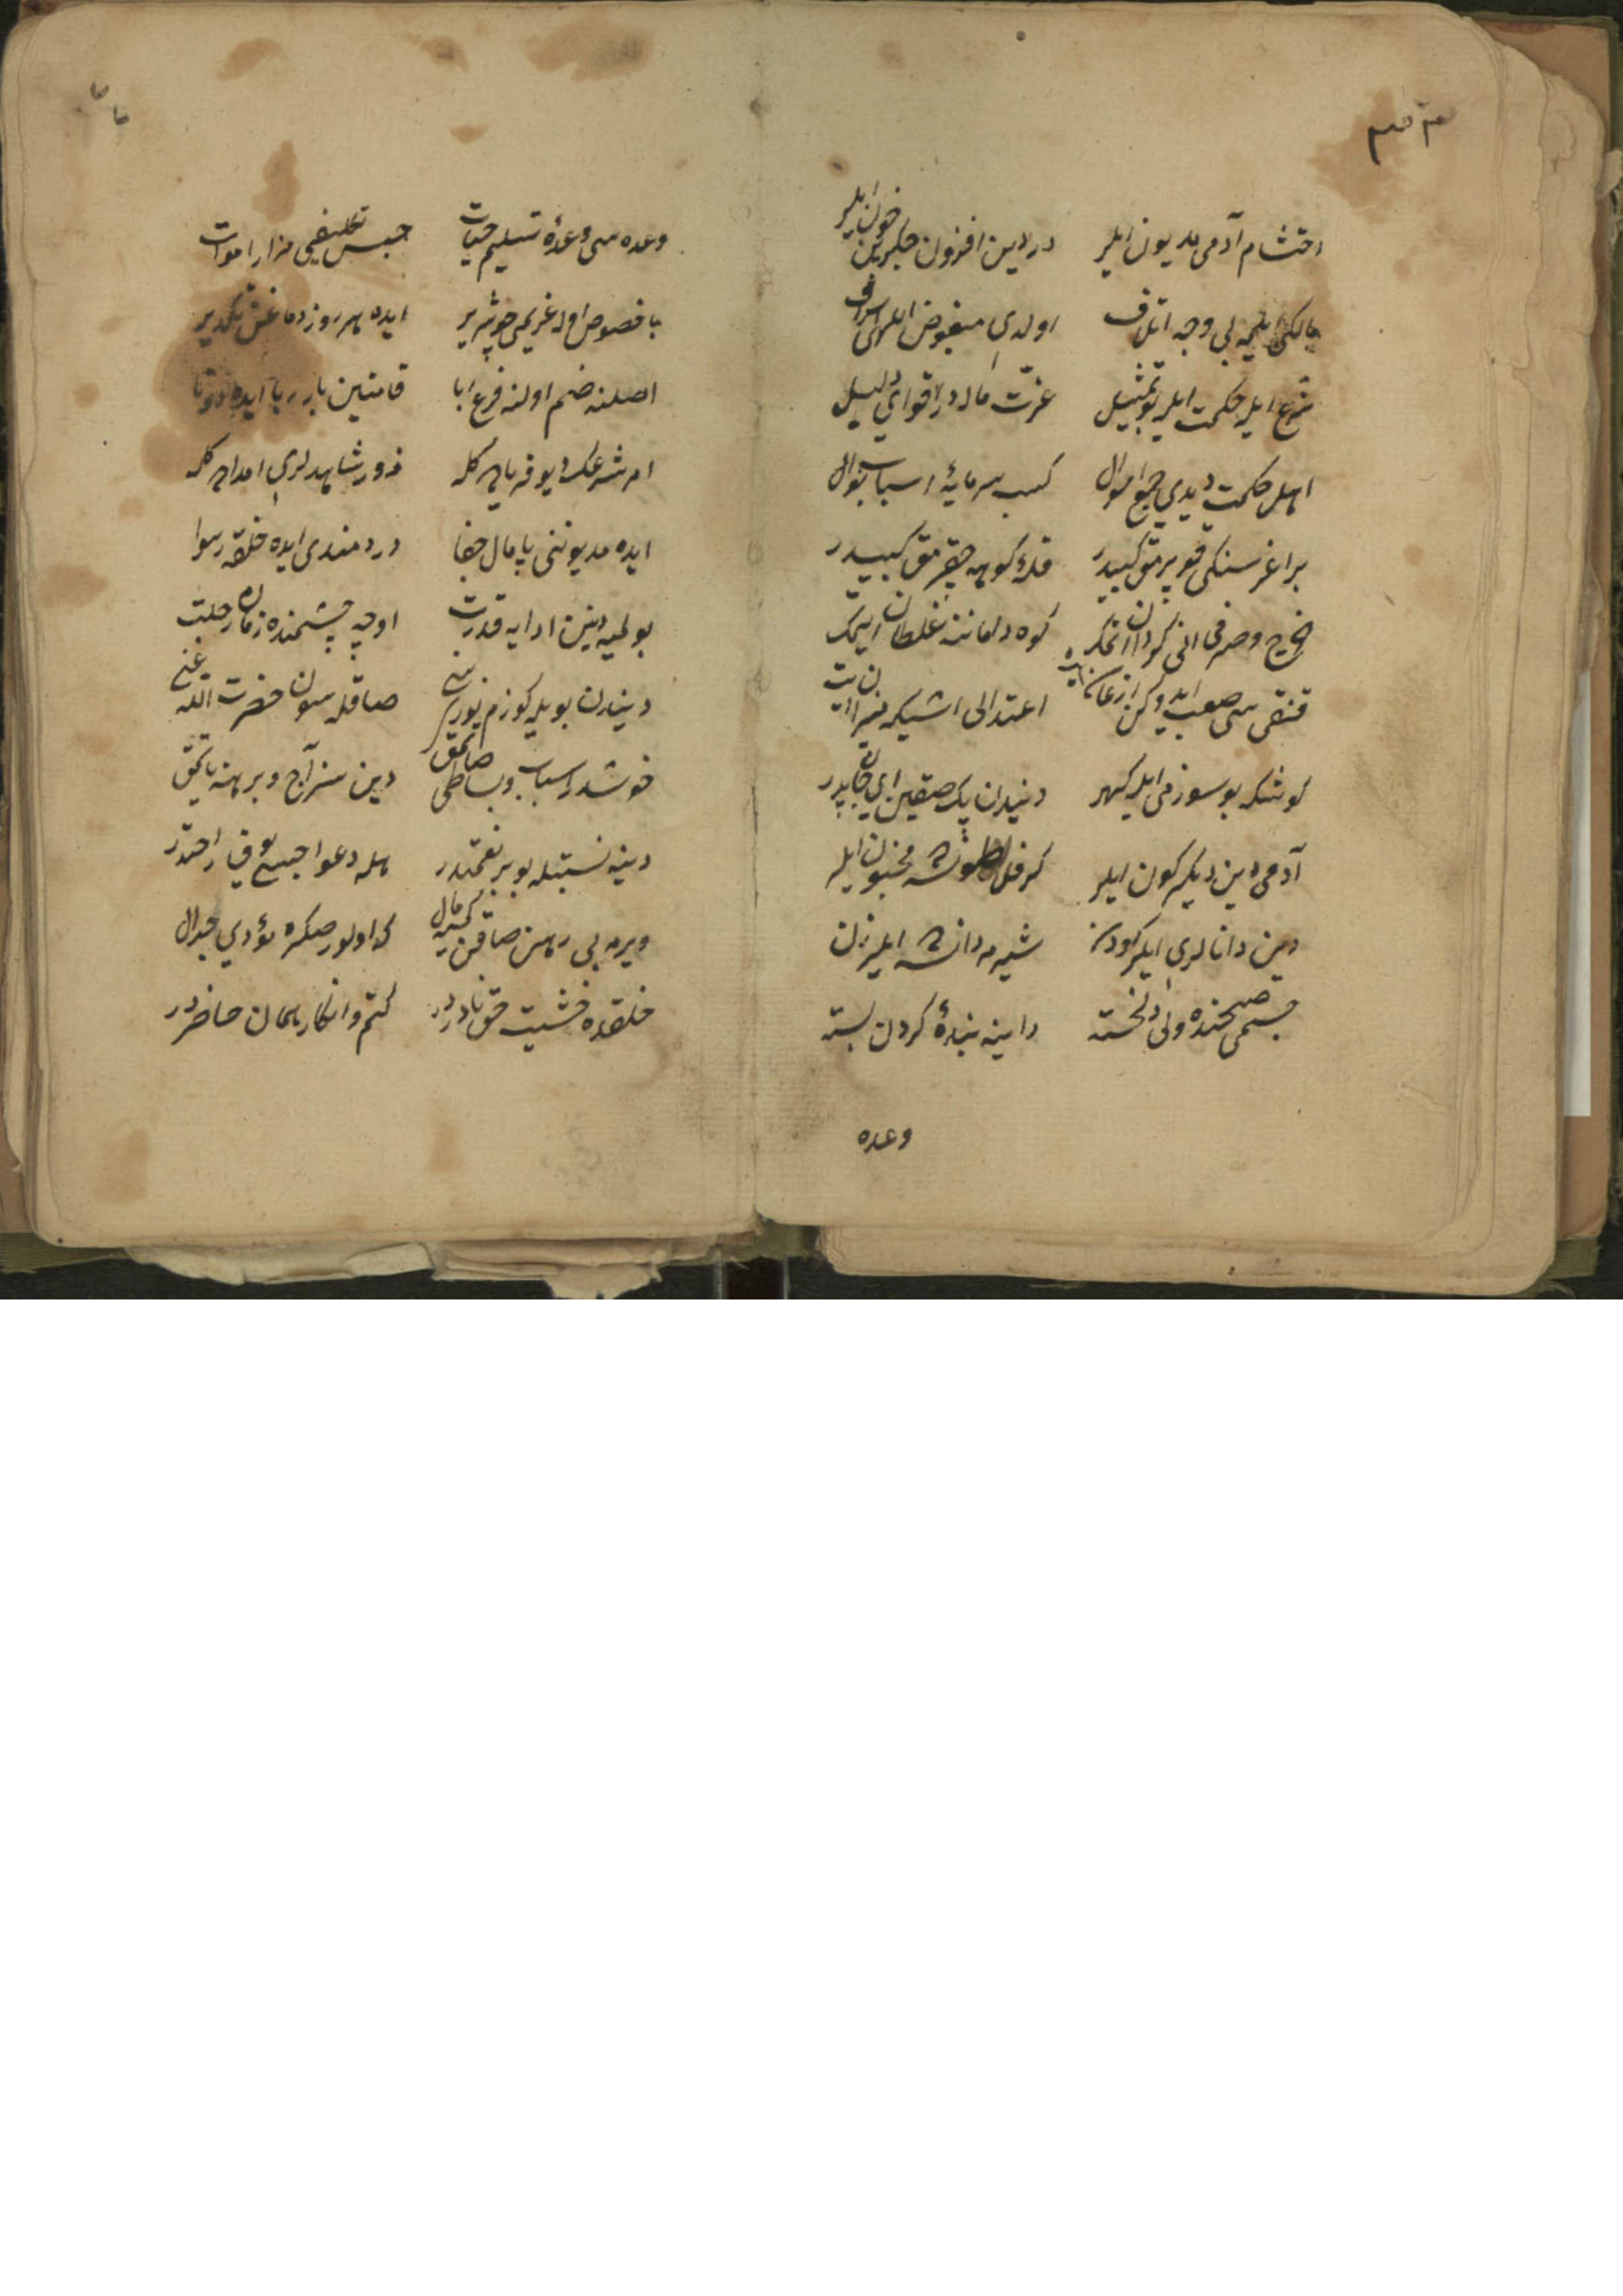 احتشام آدمی مدیون ایلر
درد دین افزون جکرین خون ایلر
مالکی ایلمه بی وجه اتلاف
اولدی مبغوض الهی اسراف
شرع ایله حکمت ایلر بو تمثیل
عزت مال در اقوای دلیل
اهل حکمت دیدی جمع اموال
کسب سرمایهٔ اسباب نوال
بر اغر سنکی قوپرمق کبیدر
قلهٔ کوهه چقرمق کبیدر
خرج وصرفی انی کردان اتمک
کوه دامانه غلطان ایتمک
قنقی سی صعب ایدوکن
اعتدالی اشیکه میزان ایت
کوشکه بو سوزمی ایله کهر
دیندن پک صقین ای جان پدر
آدمی دین دیکرکون ایلر
کر فلاطون ایسه مجنون ایلر
دین دانالری ایلر کودن
شیر مردانسه ایلر زن
جسمی صحتده ولی دلخسته
داینه بندهٔ کردن بسته
وعده
وعده سی وعدهٔ تسلیم حیات
حبس تکلیفی مزار اموات
باخصوص اوله غریمی خو شریر
ایده هر روز دماغن تکدیر
اصلنه ضم اولنه فرع ابا
قامتین بار ربا ایده دوتا
امر شرعک دیو فریاده کله
زور شاهدلری امداده کله
ایده مدیوننی پامال جفا
دردمندی ایده خلقه رسوا
بولمیه دینن ادایه قدرت
اوچه چشمنده زمان رحلت
دیندن بویله کوزم نوری سنی
صاقلسون حضرت الله غنی
خوشدر اسباب وبساطی صاتمق
دین سز آج وبرهنه یاتمق
دینه نسبتله بو بر نعمتدر
هله دعواجیسی یوق راحتدر
ویرمه بی رهن صاقن کمسیه مال
که اولور صکره مؤدی جدال
خلقده خشیت حق نادردر
کتم وانکار همان حاضردر